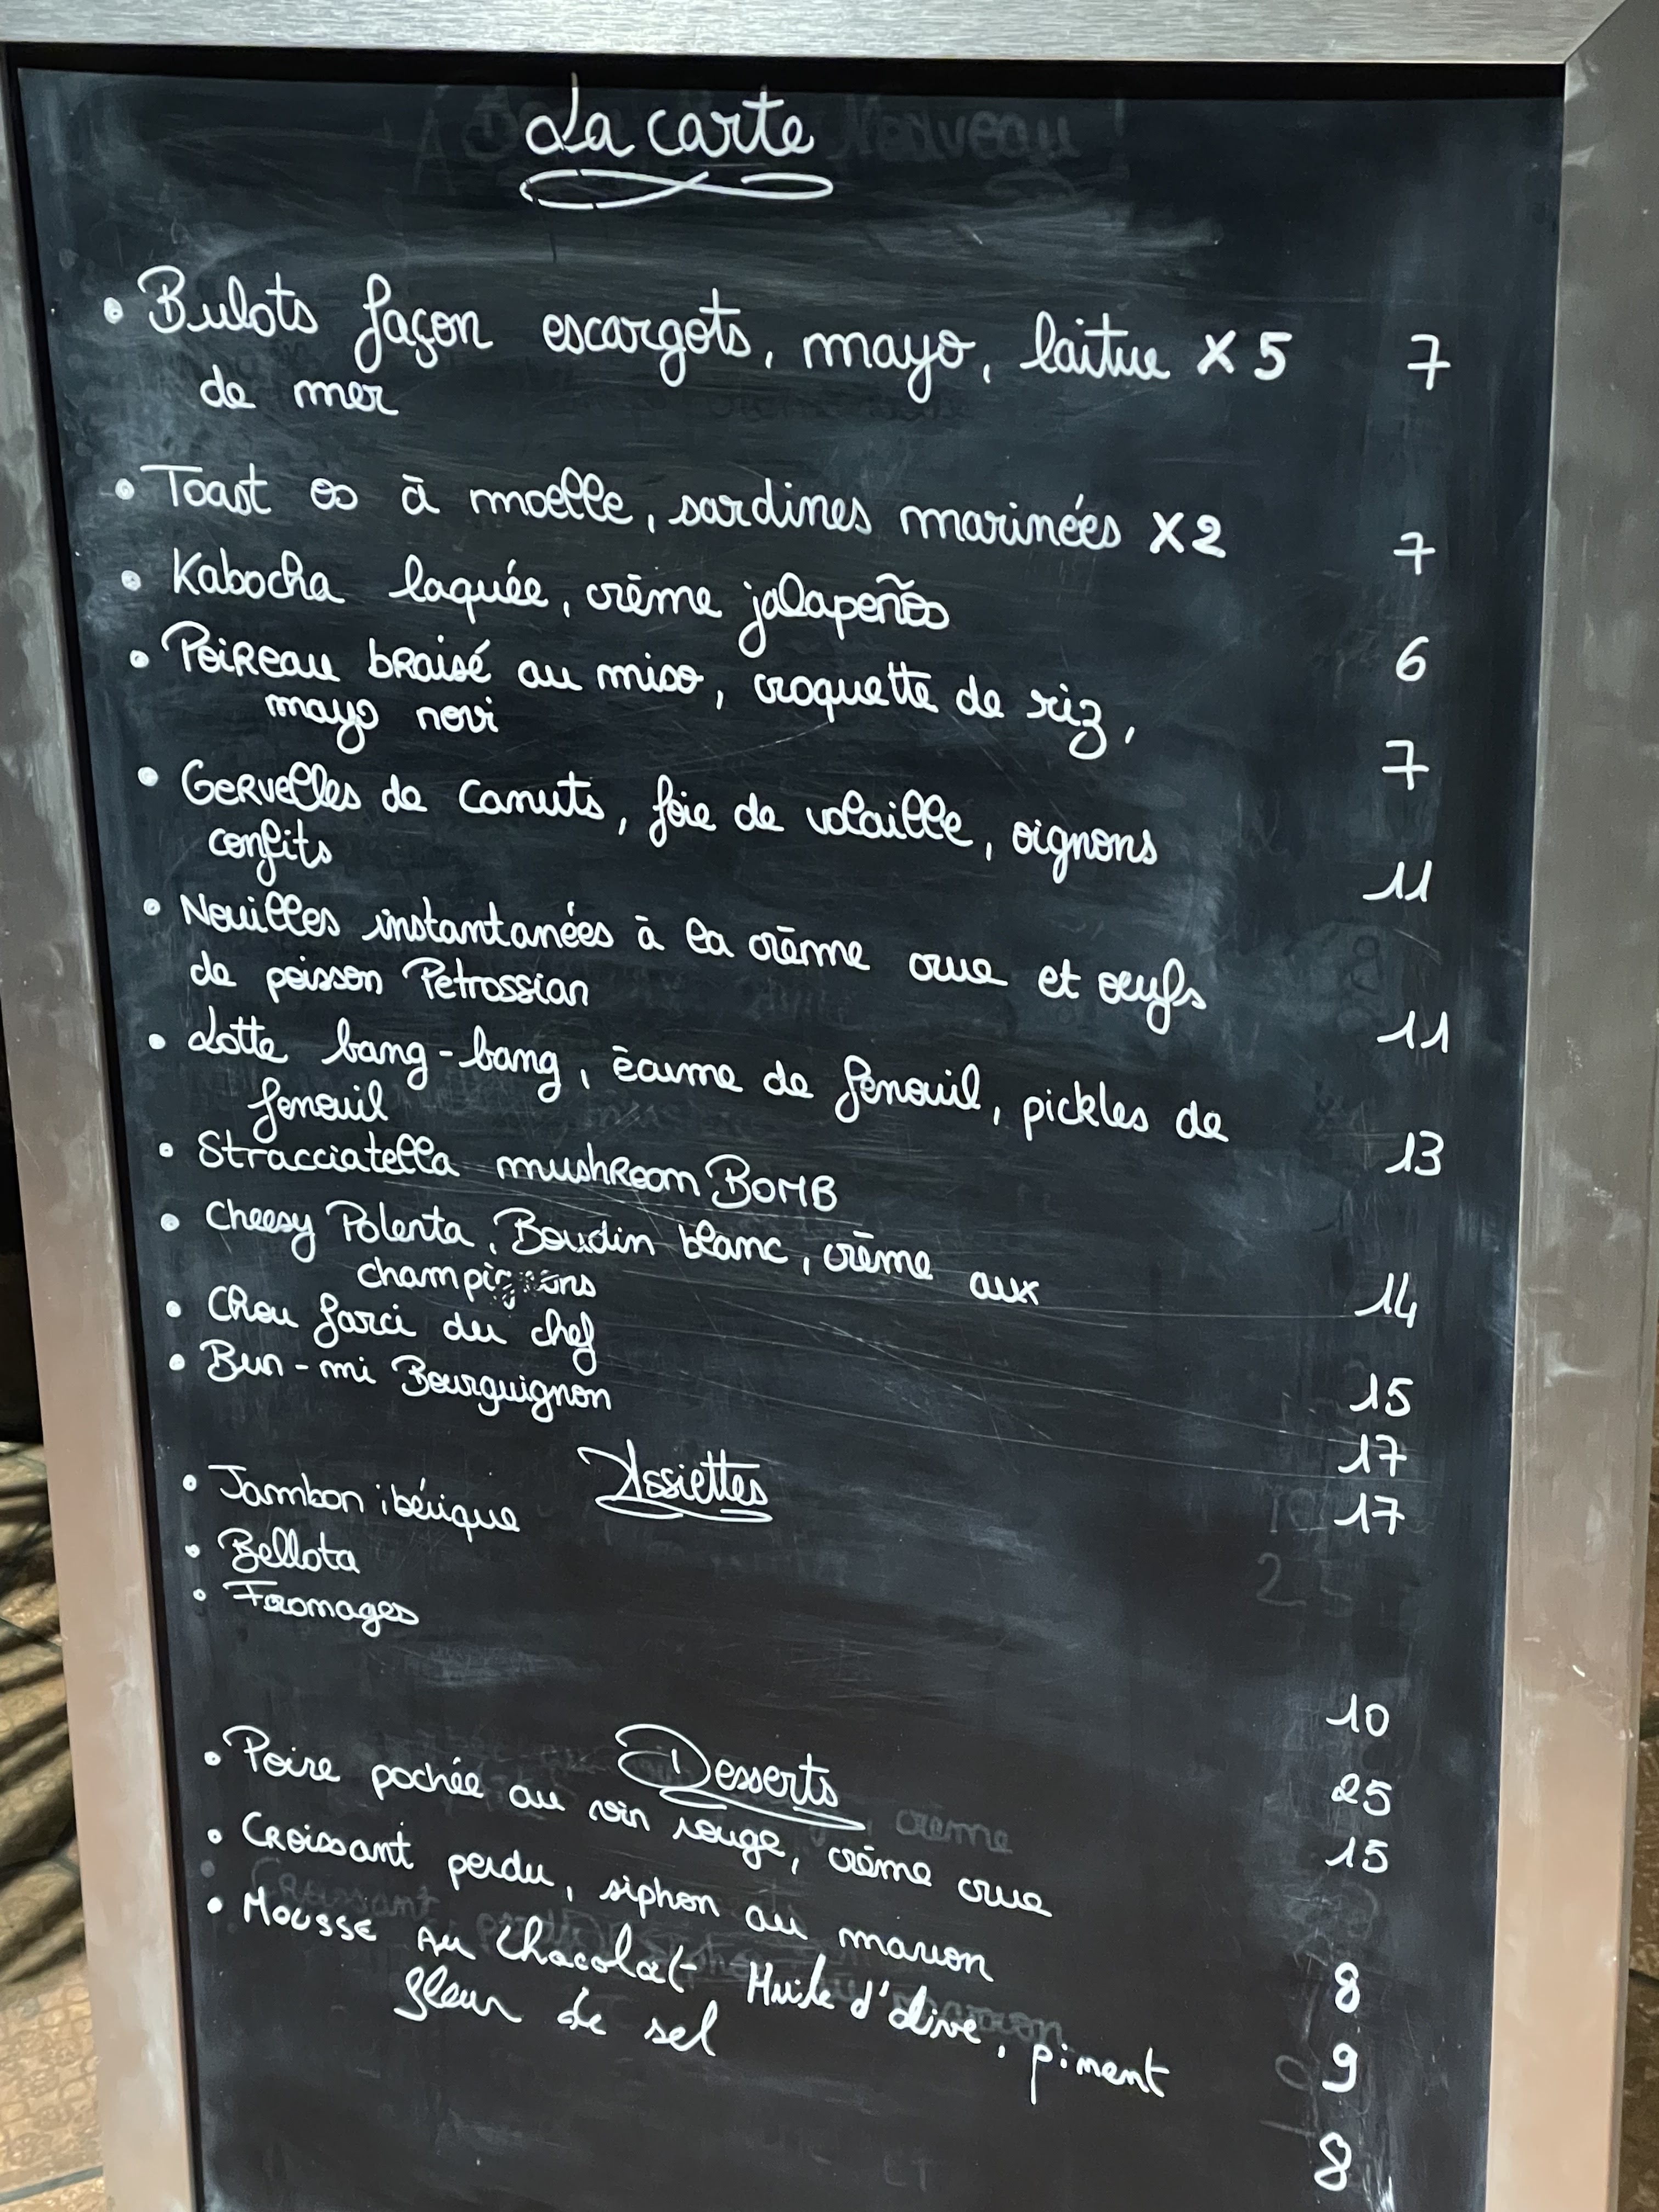 La carte
• Bulots façon escargots, mayo, laitue X 5 7
de mer
• Toast os à moelle, sardines marinées X2 7
• Kabocha laquée, crème jalapeños 6
• Poireau braisé au miso, croquette de riz, 7
mayo nori
• Cervelles de Canuts, foie de volaille, oignons 11
confits
• Nouilles instantanées à la crème crue et œufs 11
de poisson Petrossian
• Lotte bang-bang, écume de fenouil, pickles de 13
fenouil
• Stracciatella mushroom BOMB 14
• Cheesy Polenta, Boudin blanc, crème aux 15
champignons
• Chou farci du chef 17
• Bun-mi Bourguignon 17
Assiettes
• Jambon ibérique 10
• Bellota 25
• Fromages 15
Desserts
• Poire pochée au vin rouge, crème crue 8
• Croissant perdu, siphon au marron 9
• Mousse au Chocolat Huile d'olive, piment 8
fleur de sel